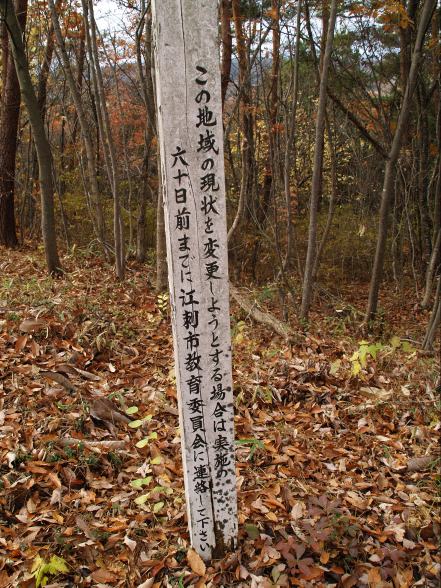 この地域の現状を変更しようとする場合は実施の
六十日前までに江刺市教育委員会に連絡して下さい